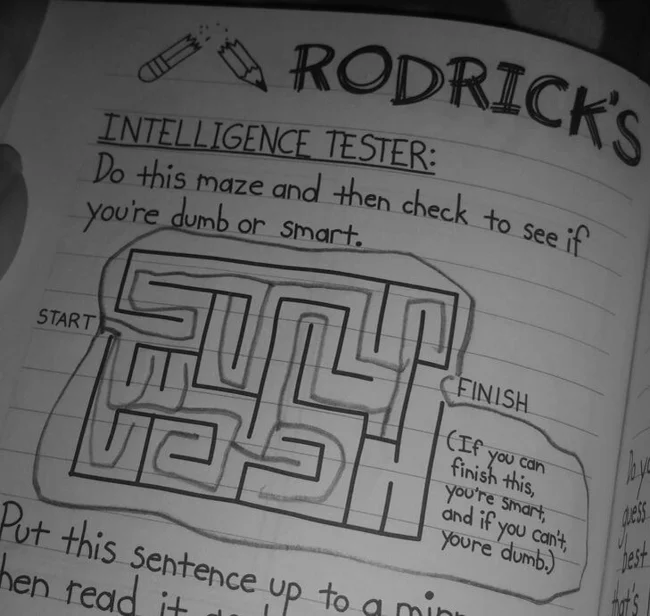 RODRICK'S
INTELLIGENCE TESTER:
Do this maze and then check to see if
you're dumb or smart.
START
FINISH
(If you can
finish this,
you're smart,
and if you can't,
youre dumb.)
Put this sentence up to a
then read it
best
that's